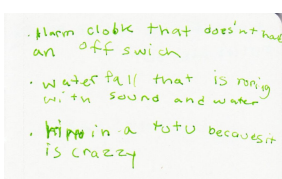 . Alarm clobk that does'nt have
an off swich
. water fall that is roning
with sound and water
. hippo in a totu becauesit
is crazzy